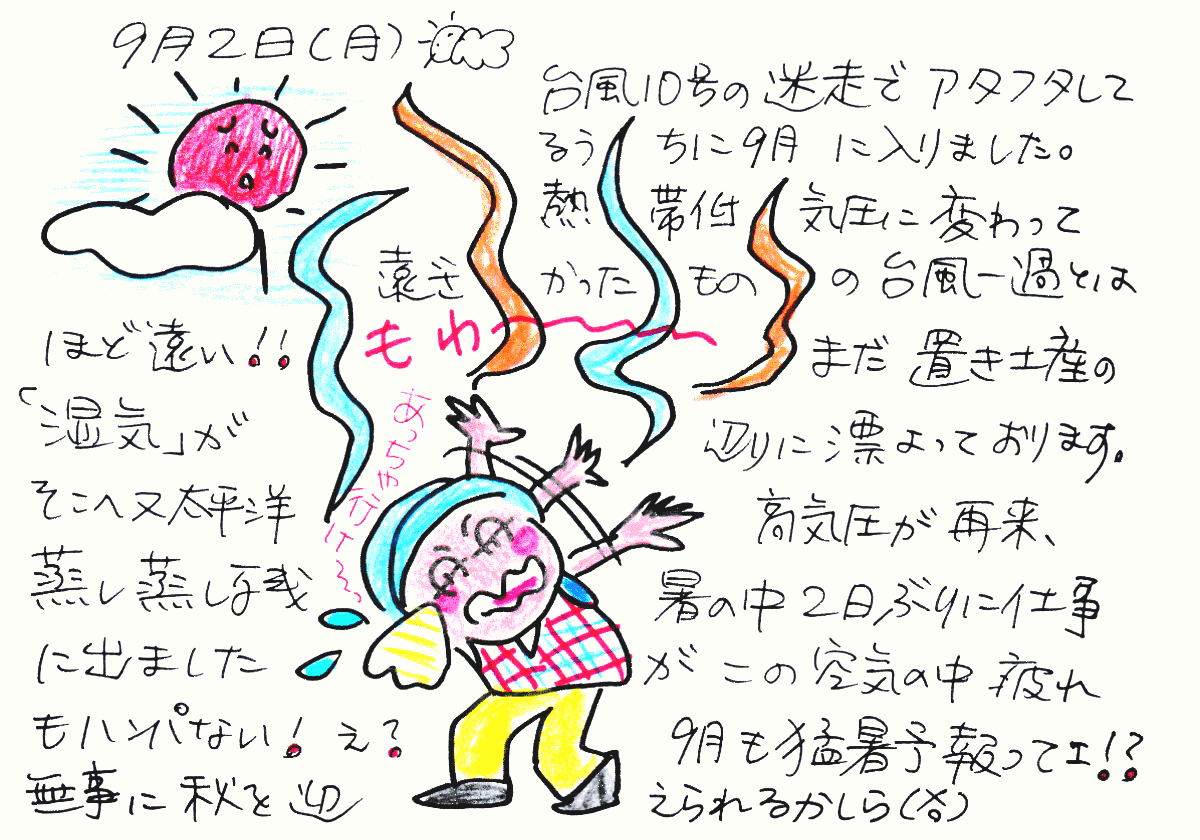 9月2日(月)
台風10号の迷走でアタフタして
るうちに9月に入りました。
熱帯低気圧に変わって
遠ざかったものの台風一過とは
ほど遠い!!まだ置き土産の
「湿気」が辺りに漂よっております。
そこへ又太平洋高気圧が再来、
蒸し蒸し残暑の中2日ぶりに仕事
に出ましたがこの空気の中疲れ
もハンパない!え?9月も猛暑予報ってェ!?
無事に秋を迎えられるかしら
もわ〜
あっちゃ行け〜